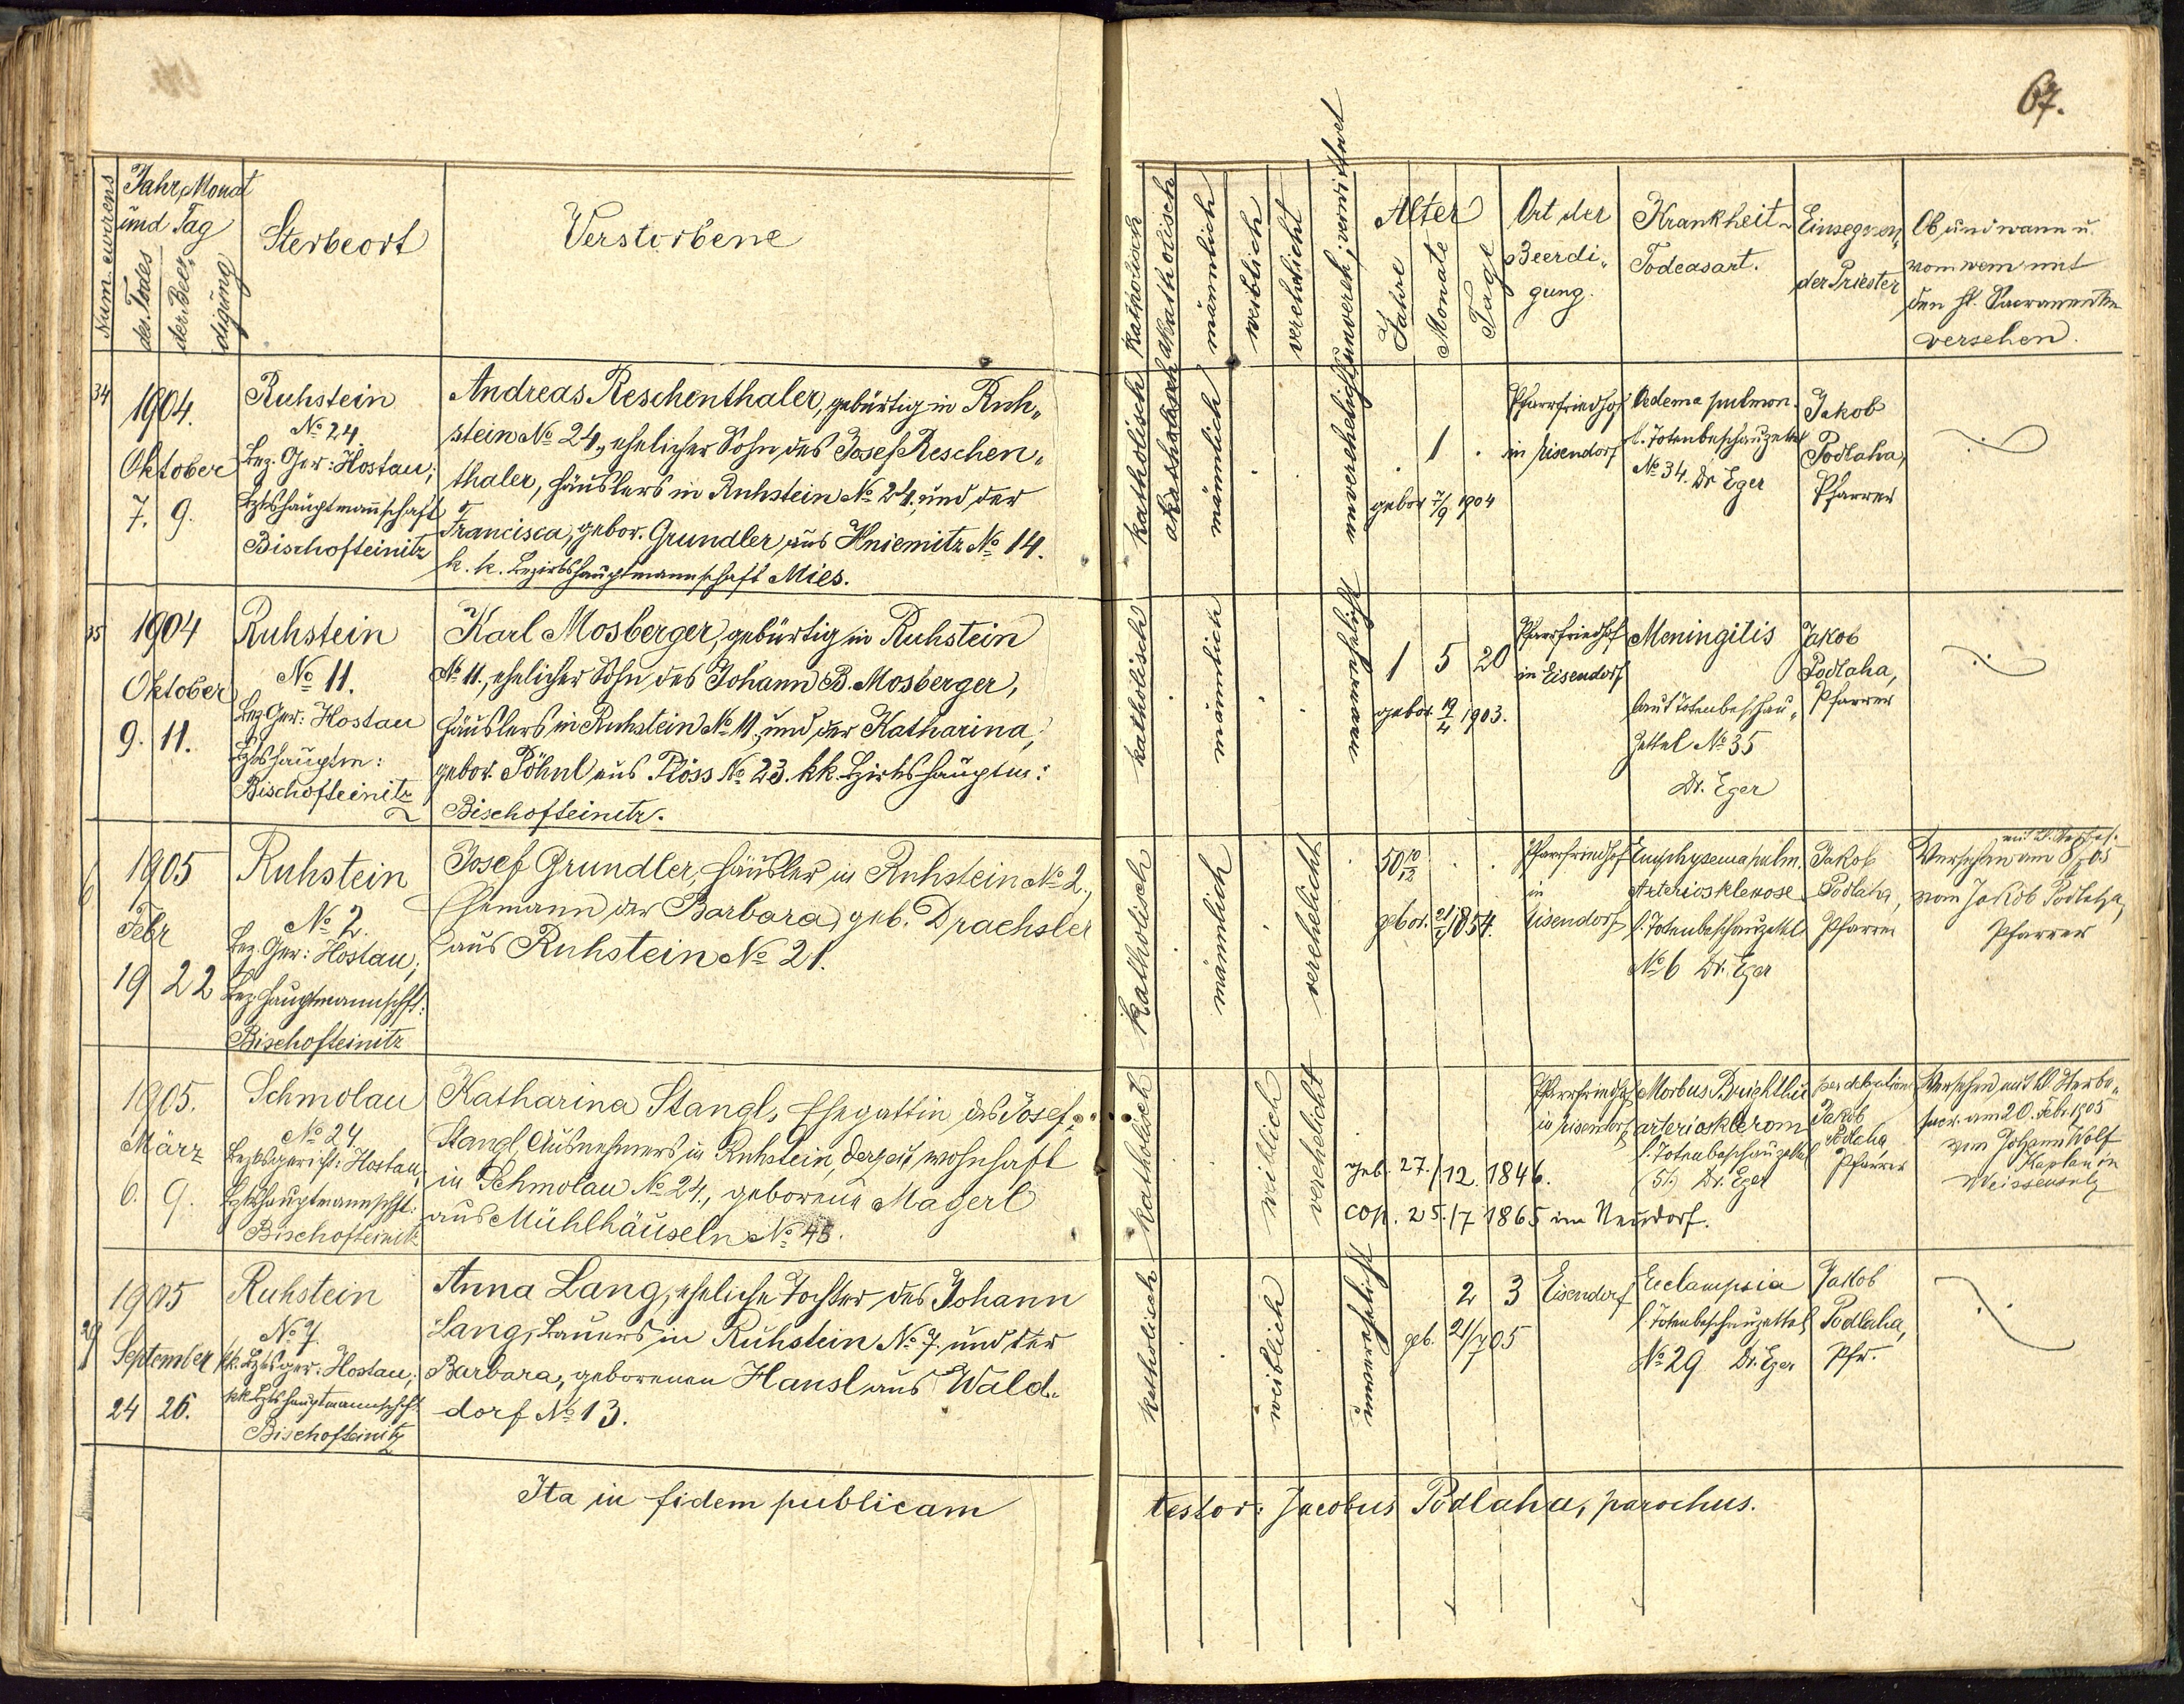 67.
Num. currens
Jahr, Monat
und Tag
des Todes
der Beer-
digung
Sterbeort
Verstorbene
katholisch
akatholisch
männlich
weiblich
verehelicht
unvereh., verwittwet
Alter
Jahre
Monate
Tage
Ort der
Beerdi-
gung.
Krankheit u
Todeasart.
Einsegnen-
der Priester
Ob und wann u.
von wem mit
den hl. Sacramenten
versehen.
34
1904.
Oktober
7. 9.
Ruhstein
No 24.
Bez. Ger: Hostau;
Bzkshauptmannschaft
Bischofteinitz
Andreas Reschenthaler, gebürtig in Ruh-
stein No 24., ehelicher Sohn des Josef Reschen-
thaler, Häuslers in Ruhstein No 24, und der
Francisca, gebor. Grundler aus Hniemitz No 14.
k. k. Bezirkshauptmannschaft Mies.
katholisch
akatholisch
männlich
unverehelicht
. 1 .
gebor 7/9 1904
Pfarrfriedhof
in Eisendorf
Oedema pulmon.
l. Totenbeschauzettel
No 34. Dr Eger
Jakob
Podlaha,
Pfarrer
35
1904
Oktober
9. 11.
Ruhstein
No 11.
Bez Ger: Hostau
Bzkshauptm:
Bischofteinitz
Karl Mosberger, gebürtig in Ruhstein
No 11., ehelicher Sohn des Johann B. Mosberger,
Häuslers in Ruhstein No 11, und der Katharina,
gebor. Pöhnl aus Plöss No 23. kk. Bzirkshauptm:
Bischofteinitz.
katholisch
männlich
unverehelicht
1 5 20
gebor. 19/4 1903.
Pfarrfriedhof
in Eisendorf
Meningitis
laut Totenbeschau-
Zettel No 35
Dr. Eger
Jakob
Podlaha,
Pfarrer
6
1905
Febr
19 22
Ruhstein
No 2.
Bez. Ger: Hostau,
Bez hauptmannschft:
Bischofteinitz
Josef Grundler, Häusler in Ruhstein No 2.,
Ehemann der Barbara, geb. Drachsler
aus Ruhstein No 21.
katholisch
männlich
verehelicht
50 10/12 . .
gebor. 1854.
Pfarrfriedhof
in
Eisendorf
Emphysema pulm.
Arteriosklerose
l. Totenbeschauzettel
No 6 Dr. Eger
Jakob
Podlaha,
Pfarrer
Versehen am
von Jakob Podlaha,
Pfarrer
1905.
März
6. 9.
Schmolau
No 24.
Bezksgericht: Hostau;
Bzkshauptmannschft:
Bischofteinitz
Katharina Stangl, Ehegattin des Josef
Stangl, Ausnehmers in Ruhstein, derzeit wohnhaft
in Schmolau No 24., geborene Magerl
aus Mühlhäuseln No 48.
katholisch
weiblich
verehelicht
geb. 27./12. 1846.
cop. 25./7 1865 in Neudorf.
Pfarrfriedhof
in Eisendorf
Morbus Brightii
arteriosklerom
l. Totenbeschauzettel
Dr. Eger
per delegationem
Jakob
Podlaha
Pfarrer
Versehen mit hl. Sterbe-
sacr. am 20. Febr 1905
von Johann Wolf
Kaplan in
Weissensulz
29
1905
September
24 26.
Ruhstein
No 7.
kk. Bzksger. Hostau,
kk Bzkshauptmannschft
Bischofteinitz
Anna Lang, eheliche Tochter des Johann
Lang, Bauers in Ruhstein No 7. und der
Barbara, geborenen Hansl aus Wald-
dorf No 13.
katholisch
weiblich
unverehelicht
2 3
geb. 21/7 05
Eisendorf
Ecclampsia
l. Totenbeschauzettel
No 29 Dr. Eger
Jakob
Podlaha,
Pfr.
Ita in fidem publicam
testor: Jacobus Podlaha, parochus.